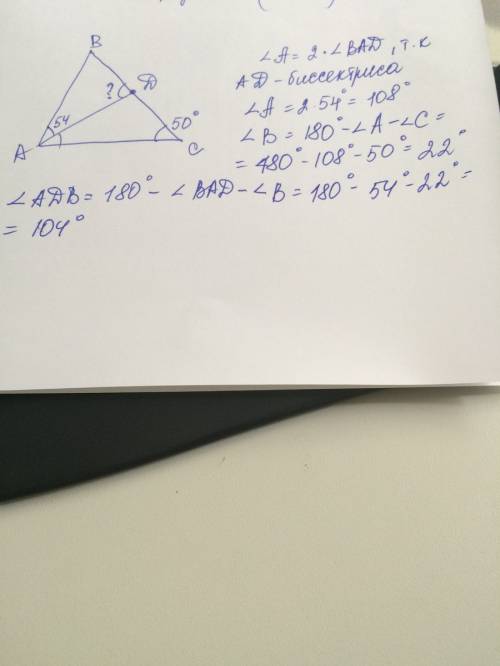 B
D
?
54
50°
A
C
∠A = 2·∠BAD, т.к
AD - биссектриса
∠A = 2·54° = 108°
∠B = 180° - ∠A - ∠C =
= 180° - 108° - 50° = 22°
∠ADB = 180° - ∠BAD - ∠B = 180° - 54° - 22° =
= 104°